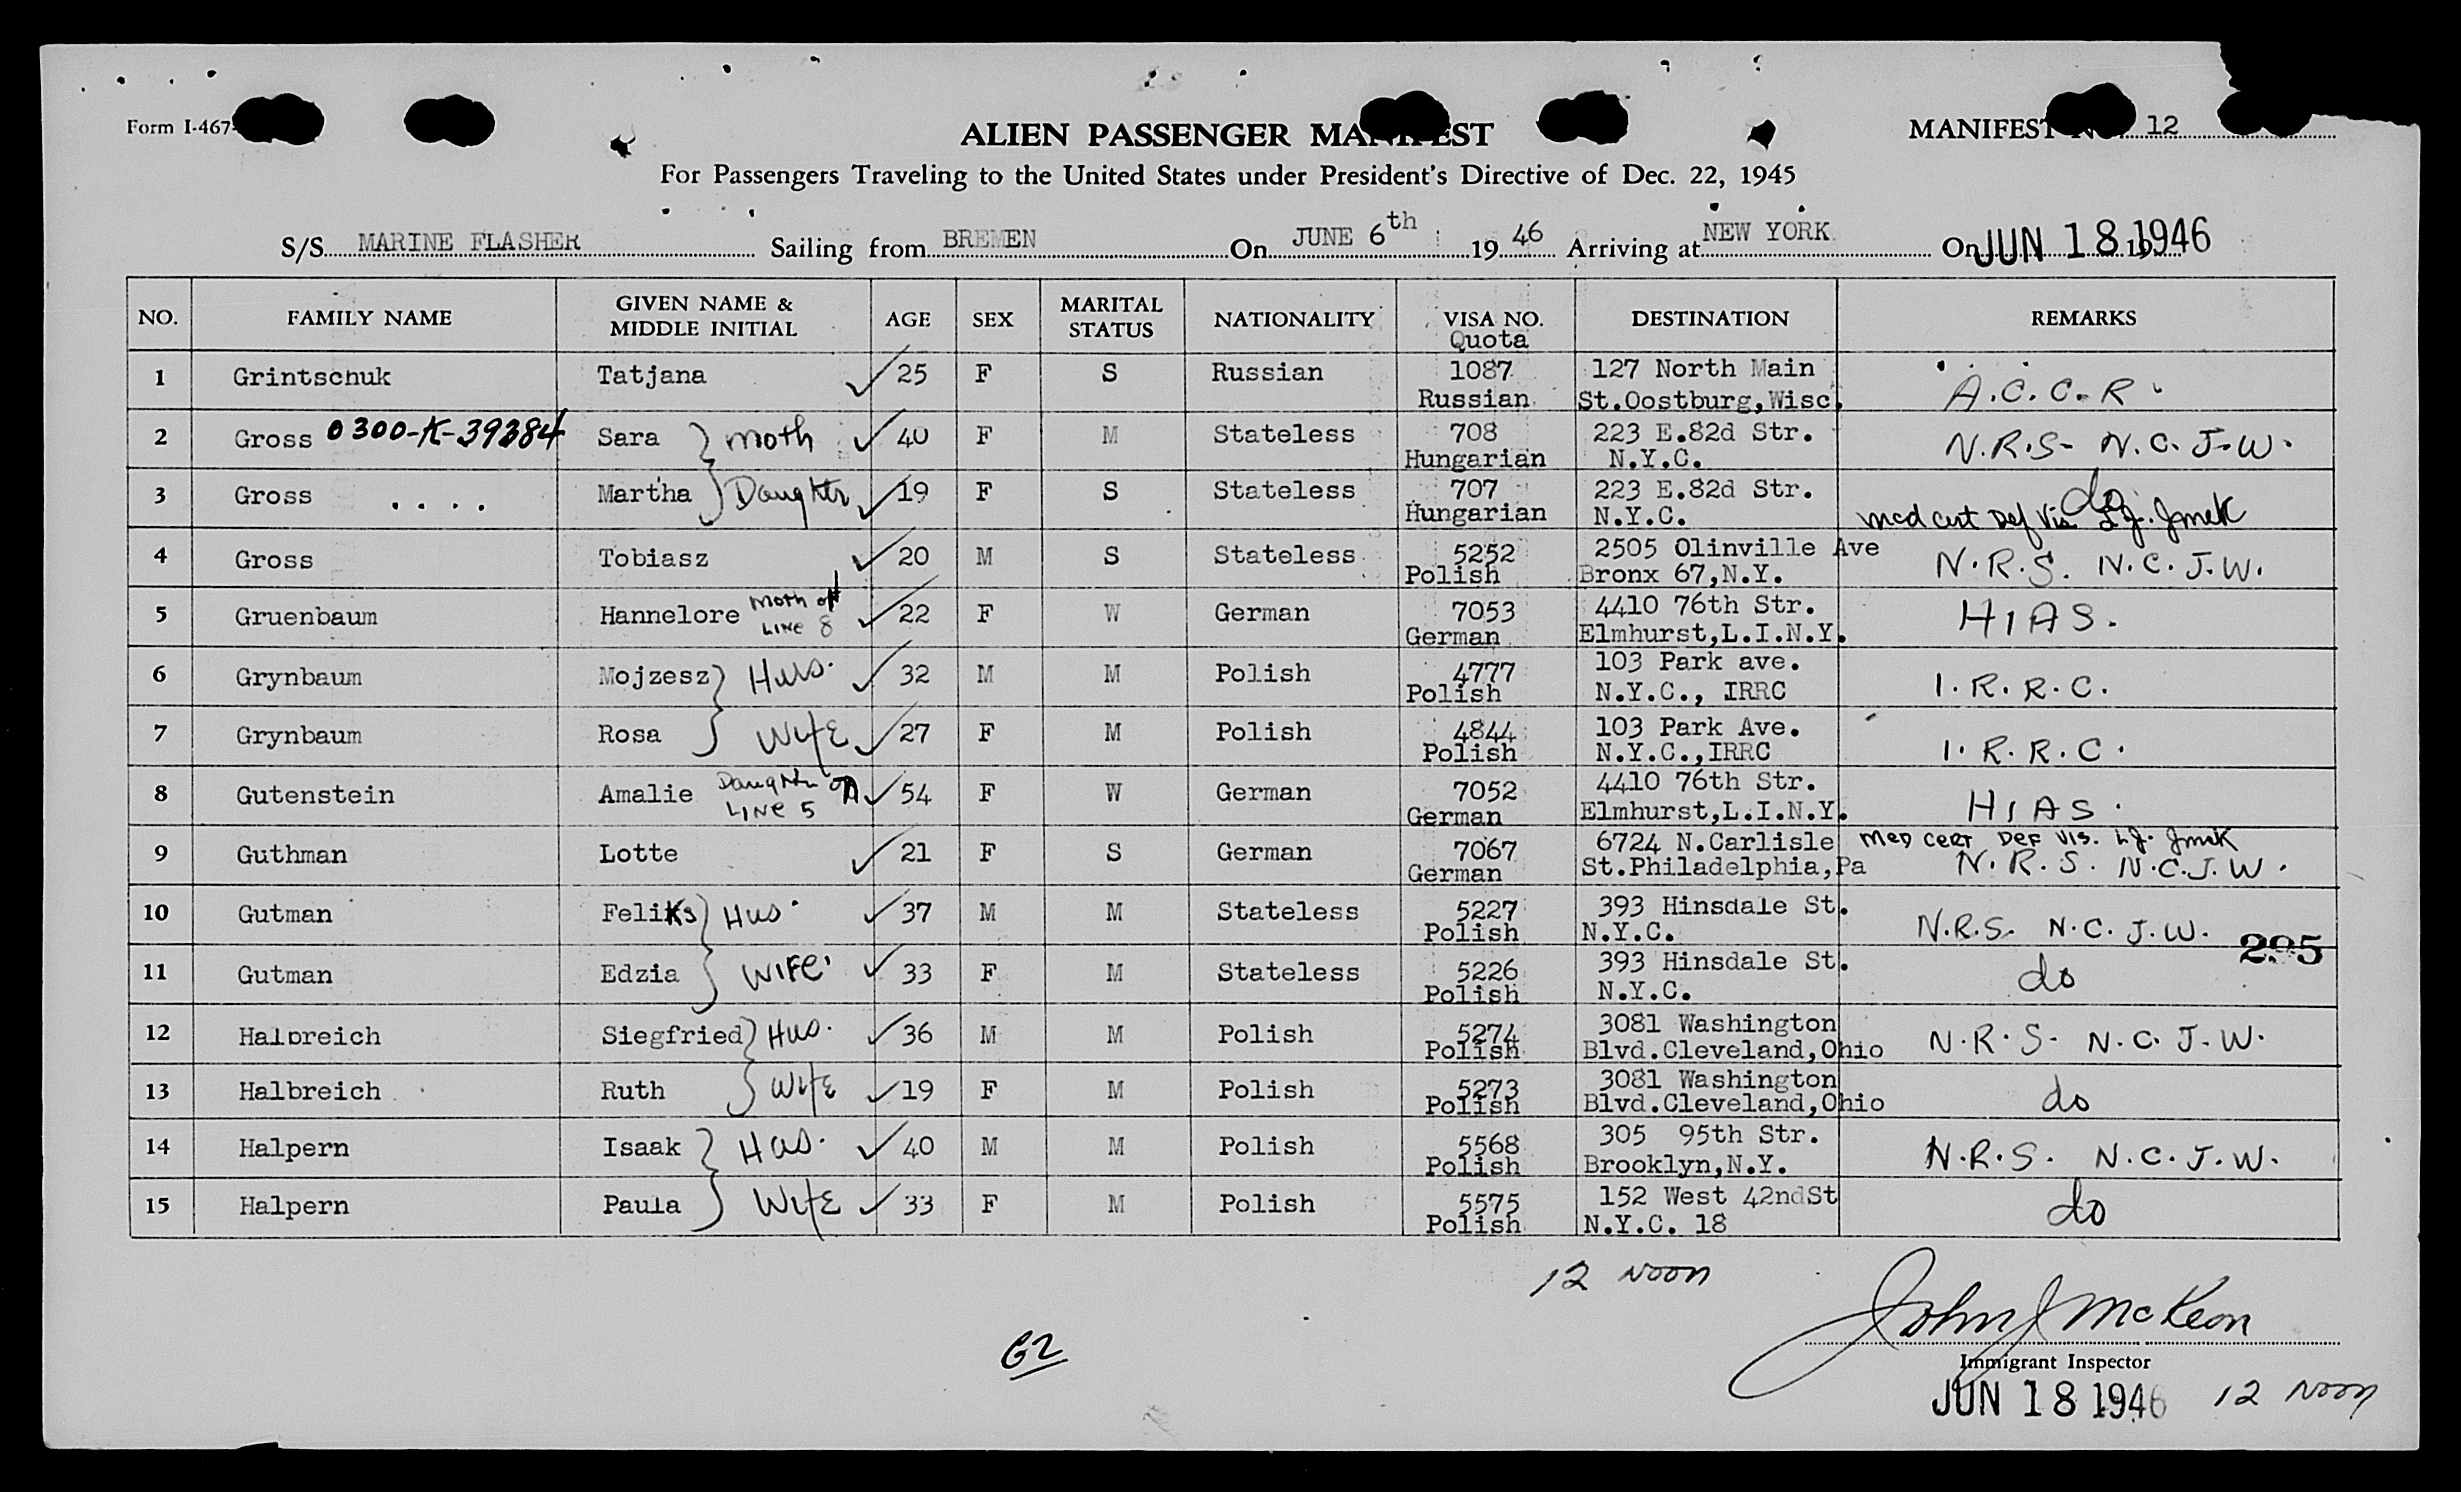 Form I-467
ALIEN PASSENGER MANIFEST
MANIFEST NO. 12
For Passengers Traveling to the United States under President's Directive of Dec. 22, 1945
S/S MARINE FLASHER Sailing from BREMEN On JUNE 6th 19 46 Arriving at NEW YORK On JUN 18 1946
NO. FAMILY NAME GIVEN NAME & MIDDLE INITIAL AGE SEX MARITAL STATUS NATIONALITY VISA NO. Quota DESTINATION REMARKS
1 Grintschuk Tatjana ✓ 25 F S Russian 1087 Russian 127 North Main St.Oostburg,Wisc. A.C.C.R.
2 Gross 0300-K-39384 Sara } moth ✓ 40 F M Stateless 708 Hungarian 223 E.82d Str. N.Y.C. N.R.S- N.C.J.W.
3 Gross .... Martha } Daughter ✓ 19 F S Stateless 707 Hungarian 223 E.82d Str. N.Y.C. do med cert Def Vis
4 Gross Tobiasz ✓ 20 M S Stateless 5252 Polish 2505 Olinville Ave Bronx 67,N.Y. N.R.S. N.C.J.W.
5 Gruenbaum Hannelore moth of LINE 8 ✓ 22 F W German 7053 German 4410 76th Str. Elmhurst,L.I.N.Y. HIAS.
6 Grynbaum Mojzesz } Hus. ✓ 32 M M Polish 4777 Polish 103 Park ave. N.Y.C., IRRC I.R.R.C.
7 Grynbaum Rosa } Wife ✓ 27 F M Polish 4844 Polish 103 Park Ave. N.Y.C.,IRRC I.R.R.C.
8 Gutenstein Amalie Daughter on LINE 5 ✓ 54 F W German 7052 German 4410 76th Str. Elmhurst,L.I.N.Y. HIAS.
9 Guthman Lotte ✓ 21 F S German 7067 German 6724 N.Carlisle St.Philadelphia,Pa Med Cert Def Vis. N.R.S. N.C.J.W.
10 Gutman Feliks } Hus. ✓ 37 M M Stateless 5227 Polish 393 Hinsdale St. N.Y.C. N.R.S. N.C.J.W.
295
11 Gutman Edzia } WIFE. ✓ 33 F M Stateless 5226 Polish 393 Hinsdale St. N.Y.C. do
12 Halbreich Siegfried } Hus. ✓ 36 M M Polish 5274 Polish 3081 Washington Blvd.Cleveland,Ohio N.R.S- N.C.J.W.
13 Halbreich Ruth } Wife ✓ 19 F M Polish 5273 Polish 3081 Washington Blvd.Cleveland,Ohio do
14 Halpern Isaak } Hus. ✓ 40 M M Polish 5568 Polish 305 95th Str. Brooklyn,N.Y. N.R.S. N.C.J.W.
15 Halpern Paula } Wife ✓ 33 F M Polish 5575 Polish 152 West 42ndSt N.Y.C. 18 do
12 NOON
John J McKeon
62
Immigrant Inspector
JUN 18 1946 12 NOON